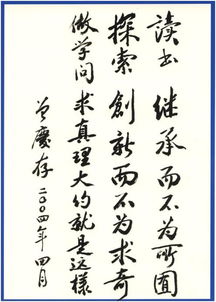 讀书 继承而不为所囿
探索 創新而不为求奇
做学问 求真理大约就是这樣
曾慶存 二〇〇四年四月